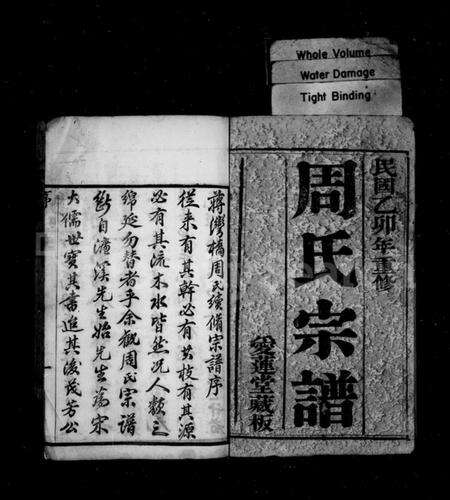 Whole Volume
Water Damage
Tight Binding
民國乙卯年重修
周氏宗譜
愛蓮堂藏板
蔣灣橋周氏續脩宗譜序
從来有其幹必有其枝有其源
必有其流木水皆然况人類之
綿延勿替者乎余觀周氏宗譜
斷自濂溪先生始先生為宋
大儒世寶其書迨其後茂芳公